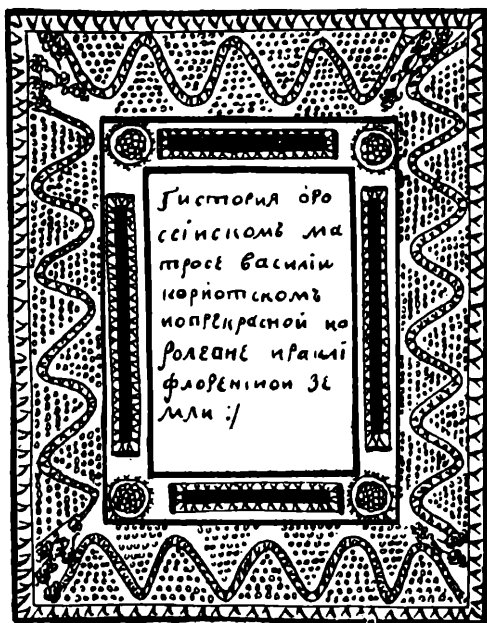 Гистория оро
ссіискомъ ма
тросе василіи
кориотскомъ
иопрекрасной ко
ролевне ираклі
флоренскои зе
мли :/